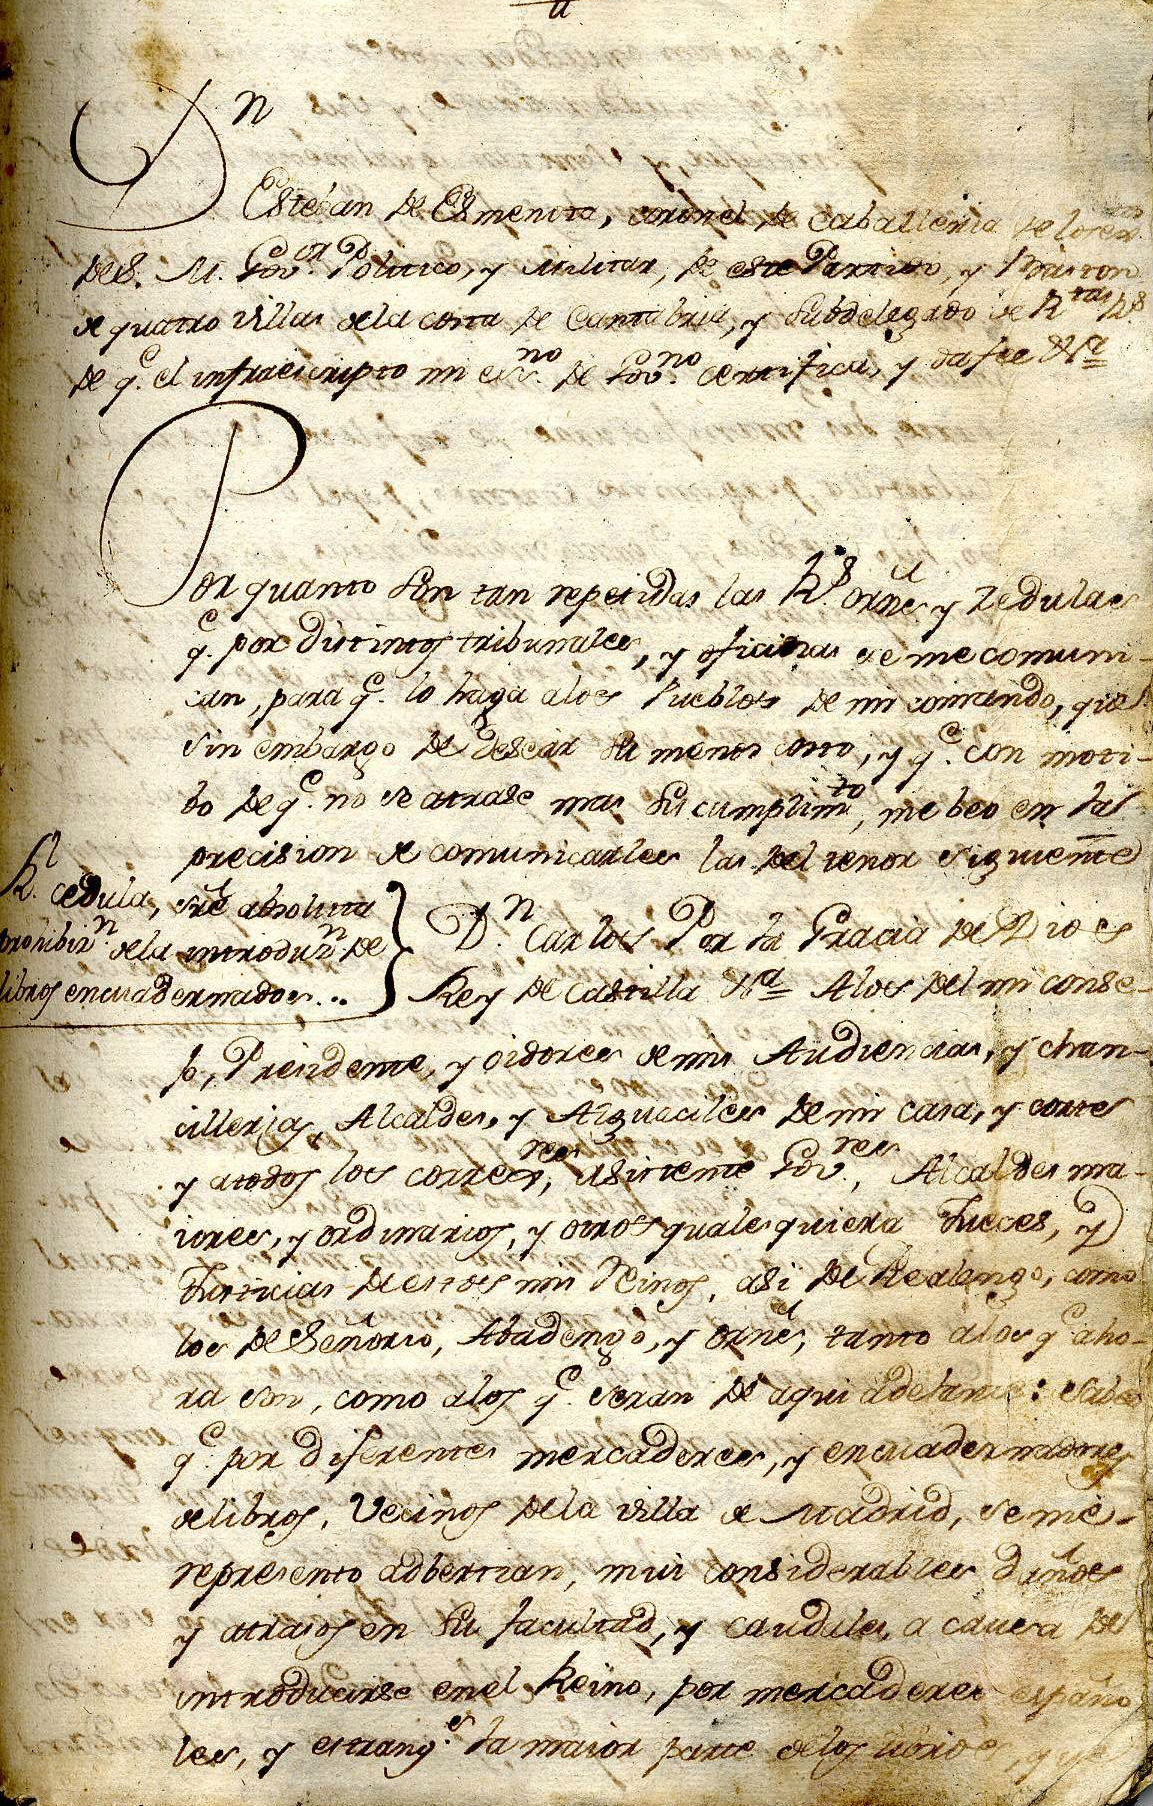 Dn
Estéban de Esmenota, coronel de Caballeria de los ex.tos
de S. M. Gov.or Politico, y Militar, de este Partido, y Baston
de quatro villas de la costa de Cantabria, y Subdelegado de R.tas R.s
de q.e el infraescripto mi es.no de Gov.no certifica, y da fee &.a
Por quanto son tan repetidas las R.s ordns y Zedulas
q.e por distintos tribunales, y oficinas se me comuni-
can, para q.e lo haga a los Pueblos de mi comando, q.e
sin embargo de desear su menor costo, y q.e con moti-
bo de q.e no se atrase mas su cumplim.to, me beo en la
precision de comunicarles las del tenor siguiente
R.l cedula, sre absoluta
prohibiz.n de la introduz.n de
libros encuadernados...
D.n Carlos Por la Gracia de Dios
Rey de Castilla &.a A los del mi conse-
jo, Presidente, y oidores de mis Audiencias, y chan-
cillerias, Alcaldes, y Alguaciles de mi casa, y corte
y a todos los corre.res, asistente Gov.res, Alcaldes ma-
iores, y ordinarios, y otros quales quiera Jueces, y
Justicias de estos mis Reinos, asi de Realengo, como
los de Señorio, Abadengo, y ordnes, tanto a los q.e aho-
ra son, como a los q.e seran de aqui adelante: sabed
q.e por diferentes mercaderes, y encuadernadores
de libros, Vecinos de la Villa de Madrid, se me
represento adbertian, mui considerables daños
y atrasos en su facultad, y caudales, a causa de
introducirse en el Reino, por mercaderes españo
les, y estrang.s la maior parte de los libros, y